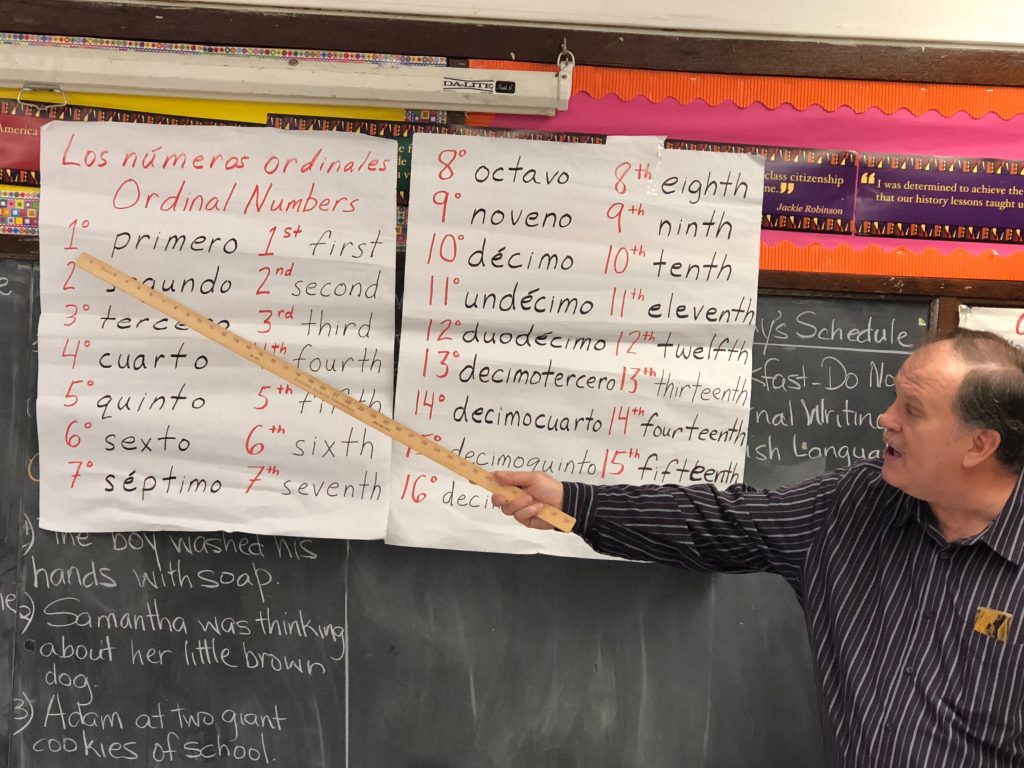 DA-LITE
America
class citizenship
me.”
Jackie Robinson
“I was determined to achieve the
that our history lessons taught u
Los números ordinales
Ordinal Numbers
1° primero 1st first
2 segundo 2nd second
3° tercero 3rd third
4° cuarto 4th fourth
5° quinto 5th fifth
6° sexto 6th sixth
7° séptimo 7th seventh
8° octavo 8th eighth
9° noveno 9th ninth
10° décimo 10th tenth
11° undécimo 11th eleventh
12° duodécimo 12th twelfth
13° decimotercero 13th thirteenth
14° decimocuarto 14th fourteenth
decimoquinto 15th fifteenth
16° decim
y's Schedule
kfast-Do No
nal Writing
ish Langua
1) The boy washed his
hands with soap.
2) Samantha was thinking
about her little brown
dog.
3) Adam at two giant
cookies of school.